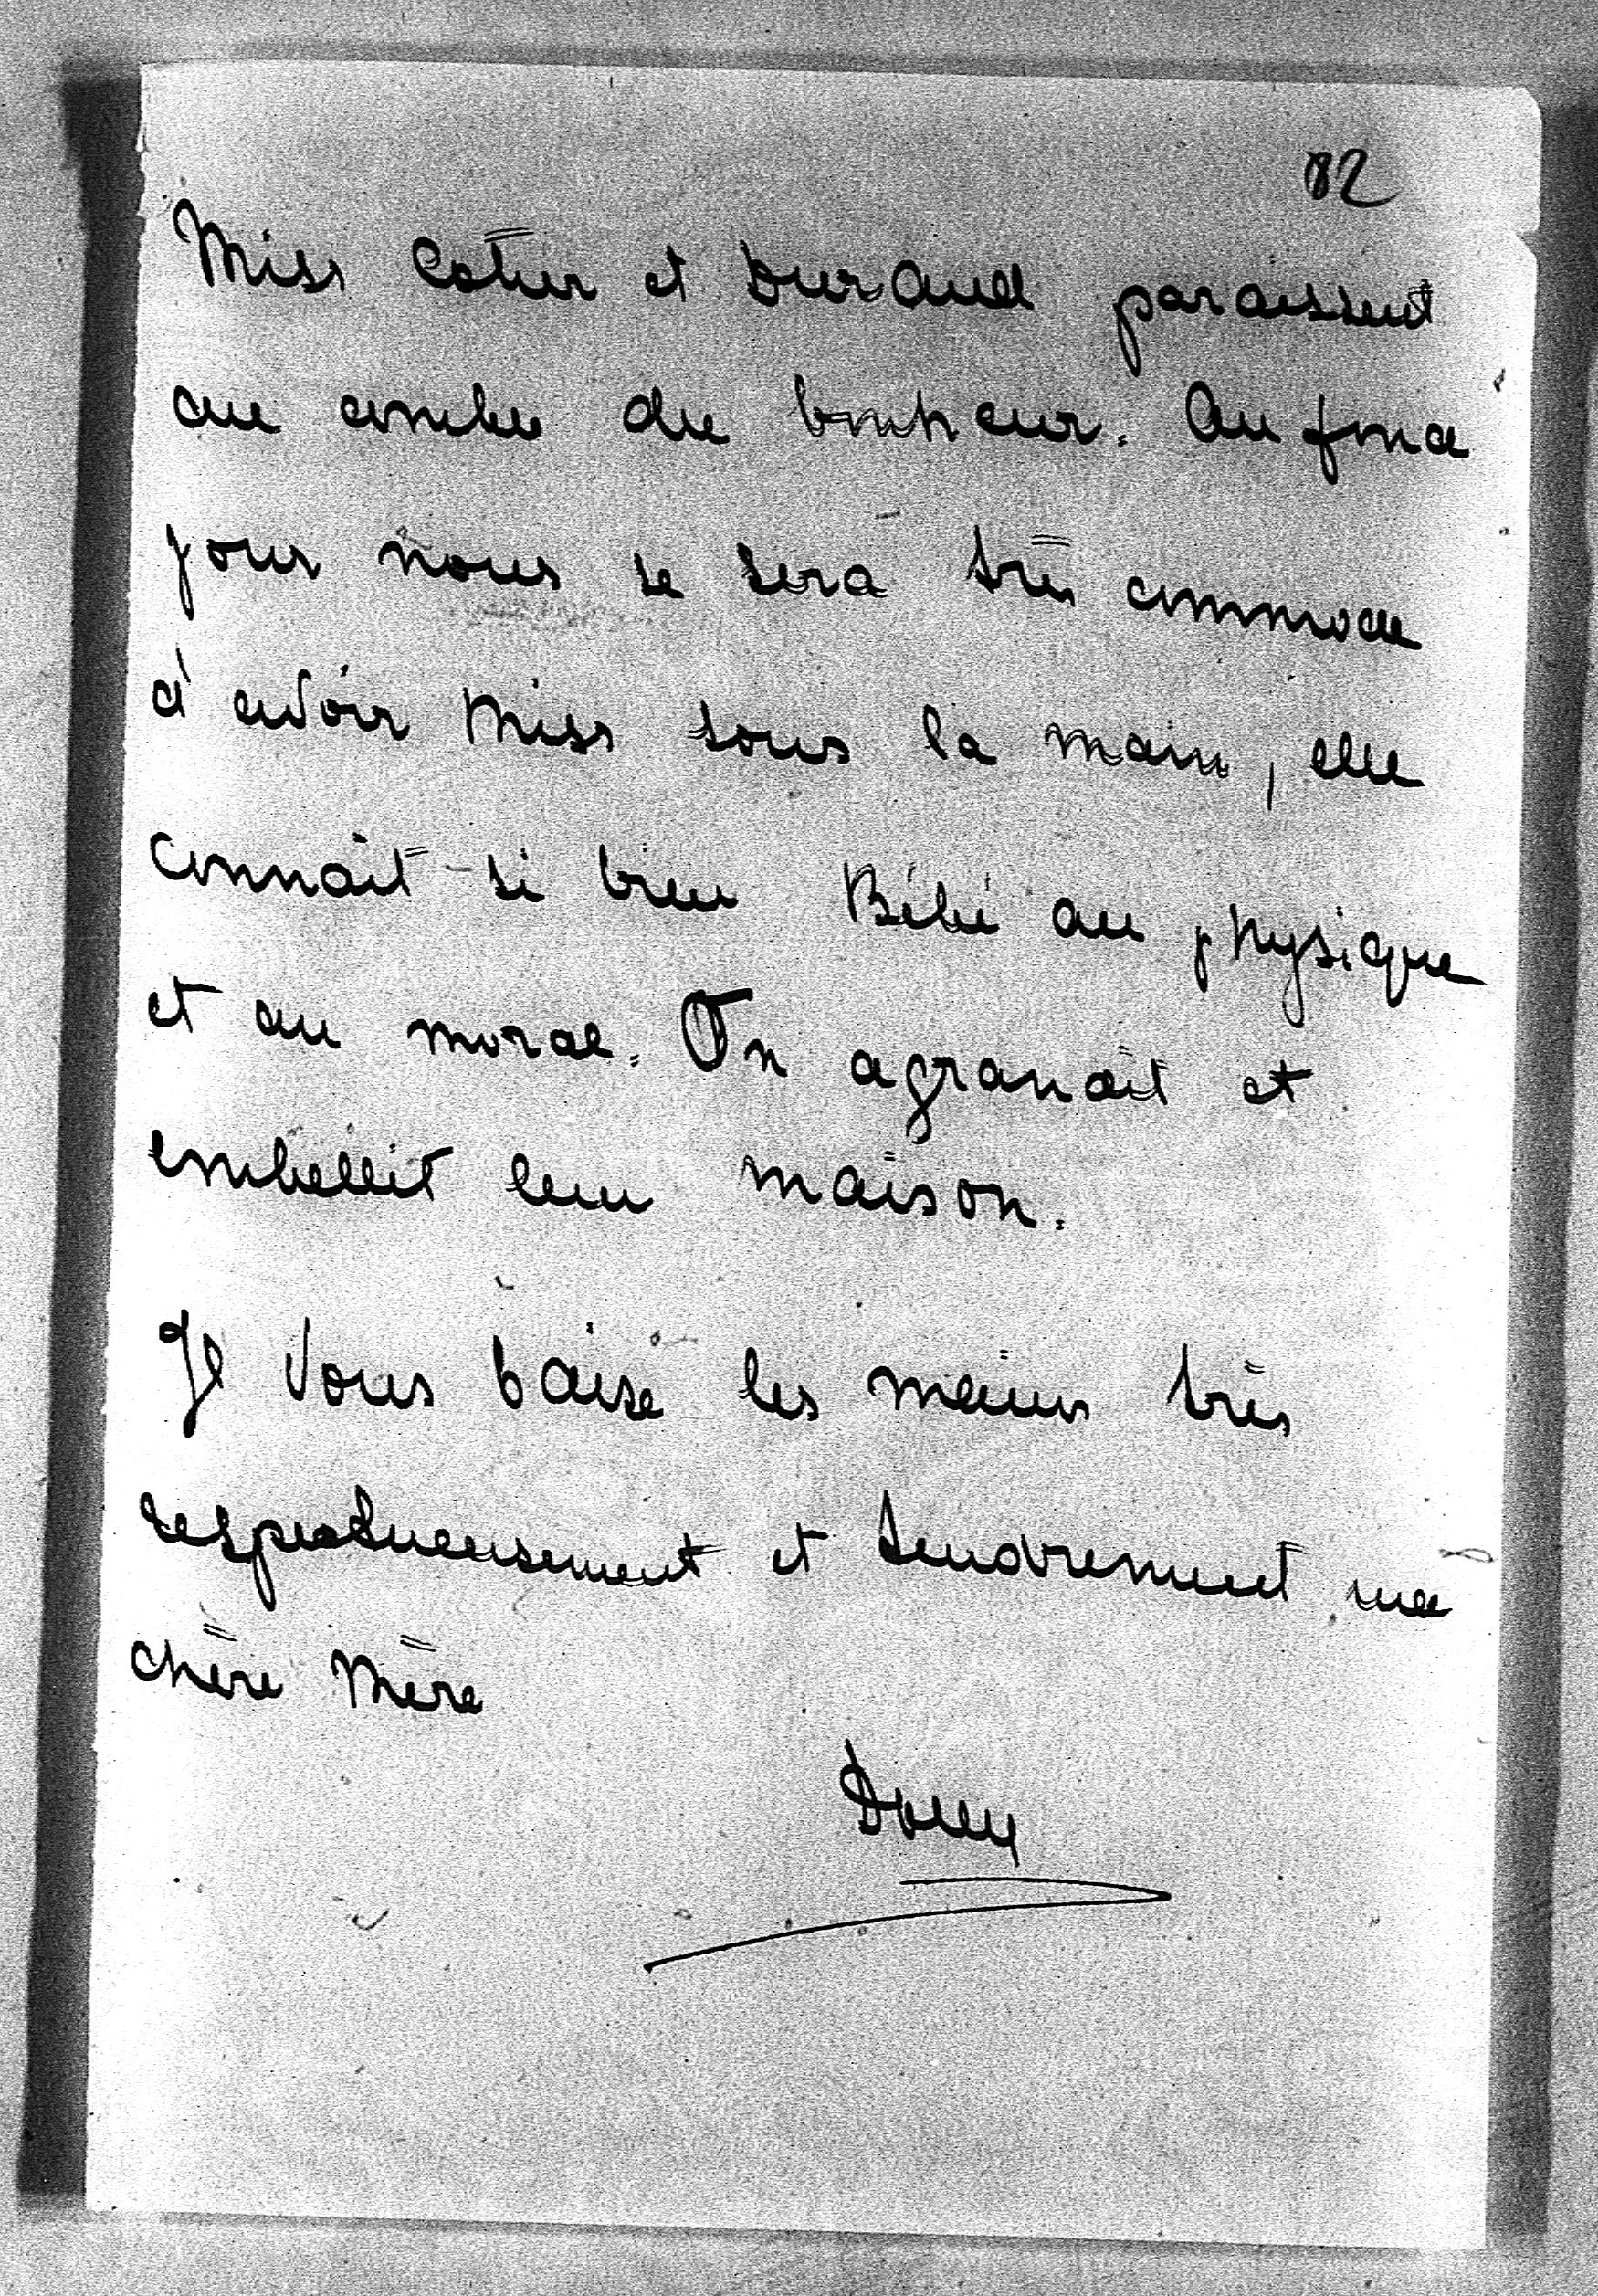 82
Miss Cotier et Durand paraissent
au comble du bonheur. Au fond
pour nous se sera très commode
d'avoir Miss sous la main, elle
connait si bien Bébé au physique
et au moral. On agrandit et
embellit leur maison.
Je vous baise les mains très
respectueusement et tendrement ma
chère Mère
Dolly